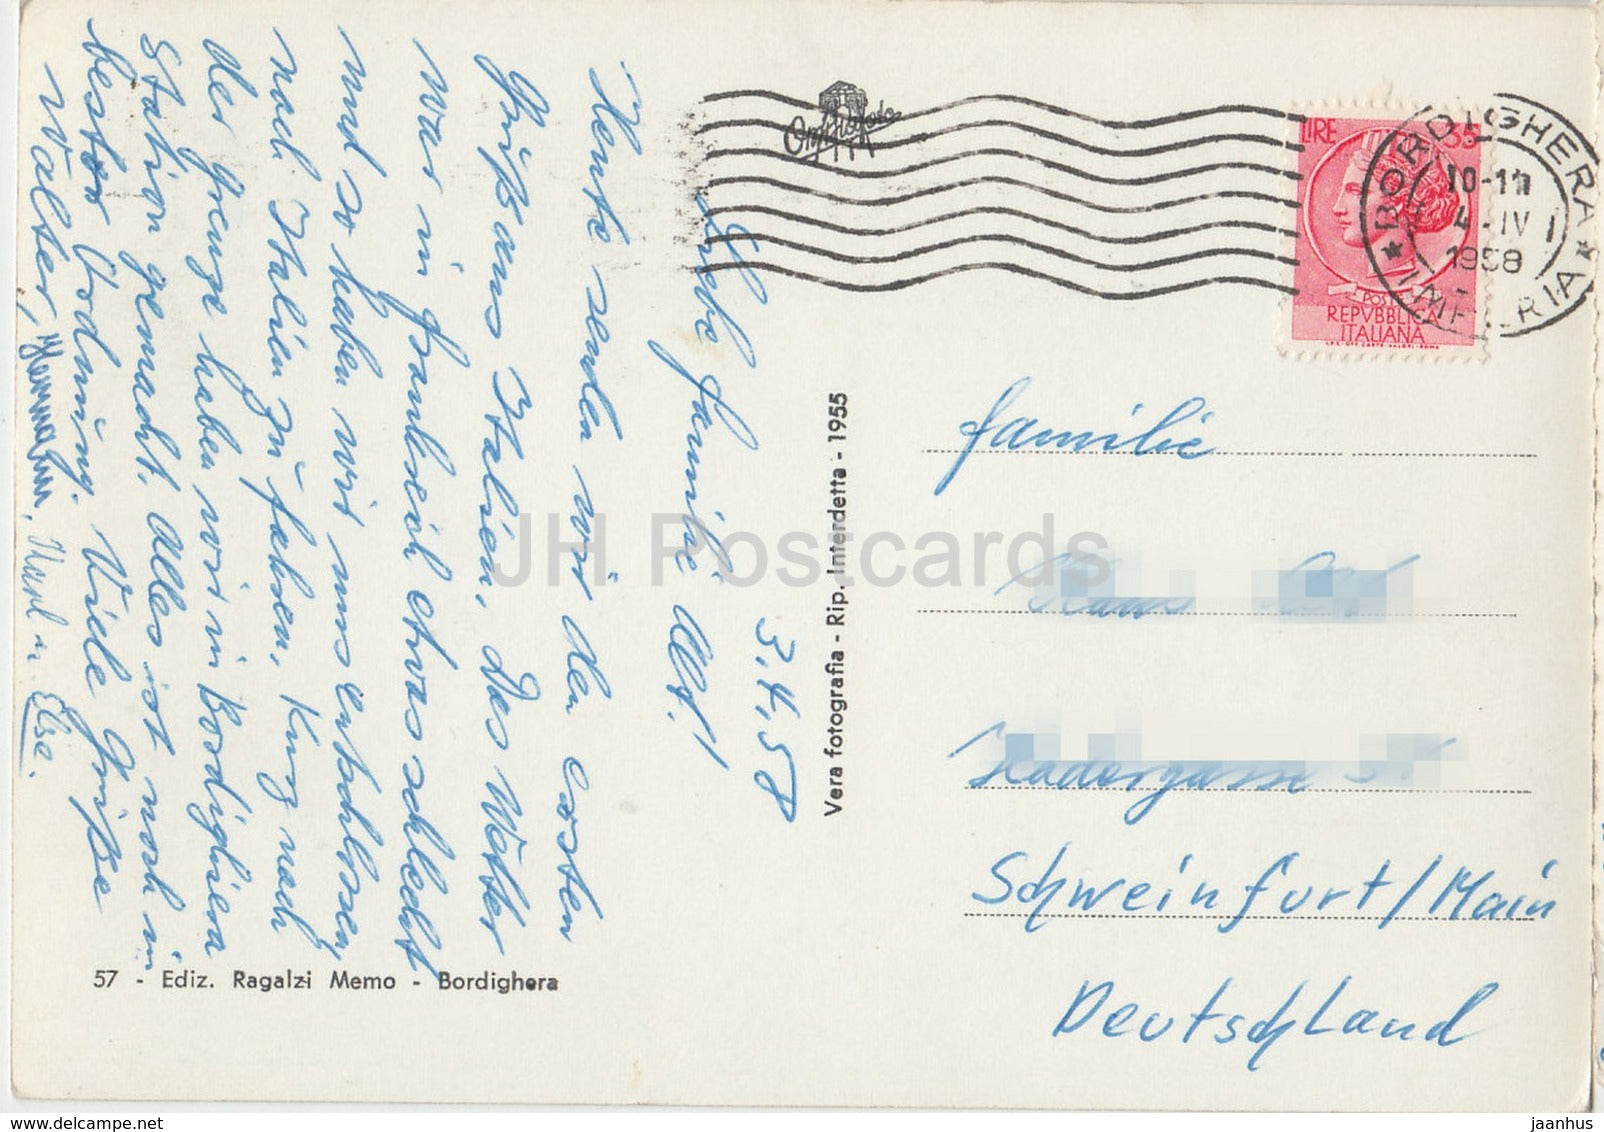 3.4.58
Liebe Familie Alt!
Heute senden wir den ersten
Gruß aus Italien. Das Wetter
war in Frankreich etwas schlecht
und so haben wir uns entschlossen,
nach Italien zu fahren. Kurz nach
der Grenze haben wir in Bordighiera
Station gemacht. Alles ist noch in
bester Ordnung. Viele Grüße
Walter, Karl u. Else.
57 - Ediz. Ragalzi Memo - Bordighera
Vera fotografia - Rip. Interdetta - 1955
LIRE 35
POSTE
REPVBBLICA
ITALIANA
BORDIGHERA
10-11
4 - IV
1958
IMPERIA
Familie
Schweinfurt/Main
Deutschland
JH Postcards
www.delcampe.net
jaanhus